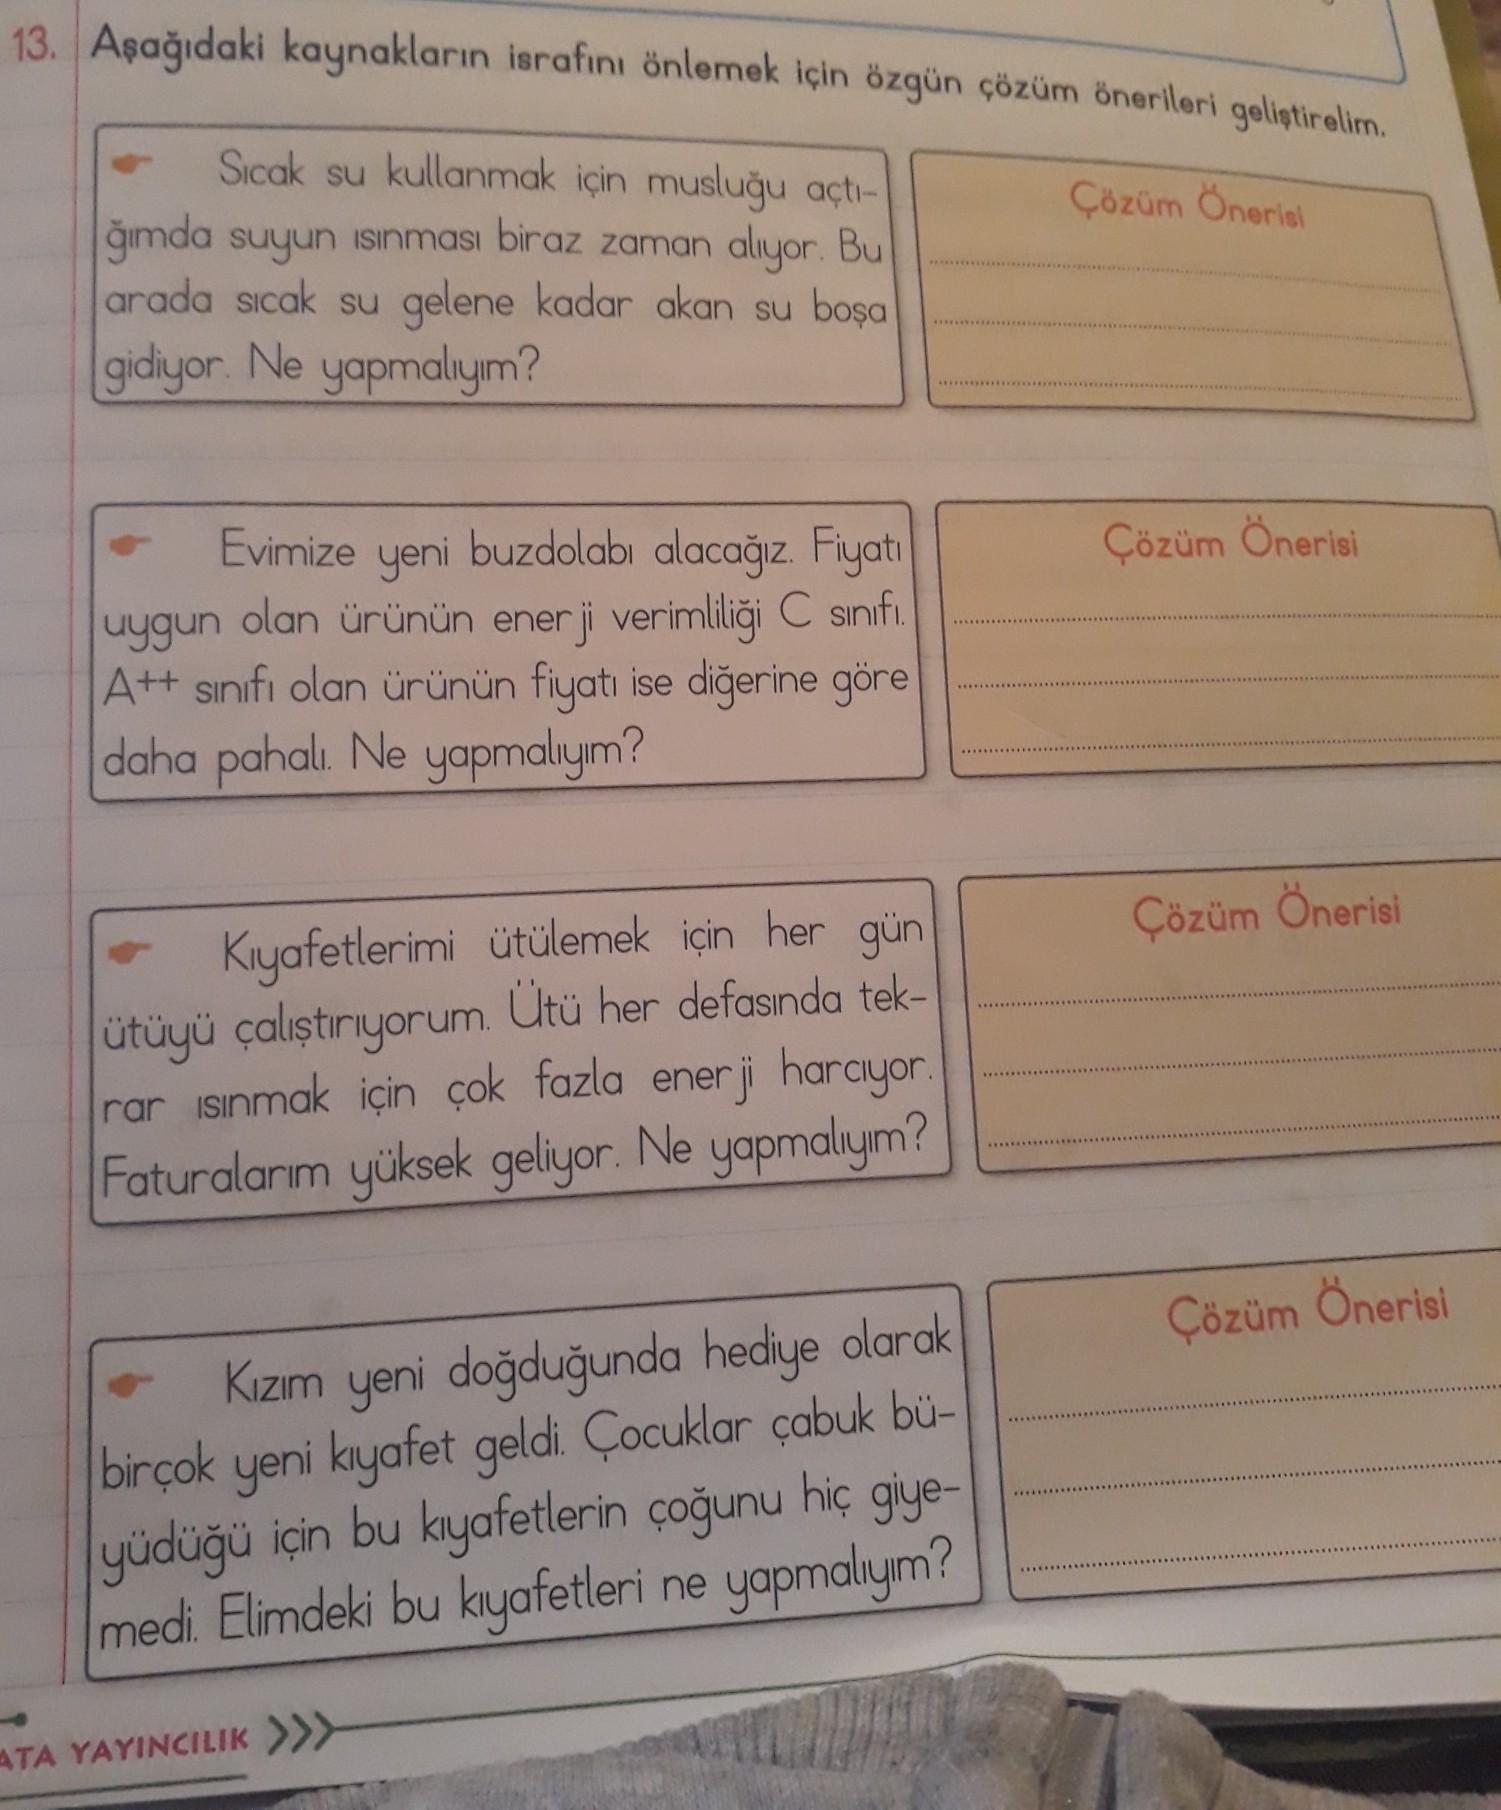 13. Aşağıdaki kaynakların israfını önlemek için özgün çözüm önerileri geliştirelim.
Sıcak su kullanmak için musluğu açtı-
ğımda suyun ısınması biraz zaman alıyor. Bu
arada sıcak su gelene kadar akan su boşa
gidiyor. Ne yapmalıyım?
Çözüm Önerisi
Evimize yeni buzdolabı alacağız. Fiyatı
uygun olan ürünün enerji verimliliği C sınıfı.
A++ sınıfı olan ürünün fiyatı ise diğerine göre
daha pahalı. Ne yapmalıyım?
Çözüm Önerisi
Kıyafetlerimi ütülemek için her gün
ütüyü çalıştırıyorum. Ütü her defasında tek-
rar ısınmak için çok fazla enerji harcıyor.
Faturalarım yüksek geliyor. Ne yapmalıyım?
Çözüm Önerisi
Kızım yeni doğduğunda hediye olarak
birçok yeni kıyafet geldi. Çocuklar çabuk bü-
yüdüğü için bu kıyafetlerin çoğunu hiç giye-
medi. Elimdeki bu kıyafetleri ne yapmalıyım?
Çözüm Önerisi
ATA YAYINCILIK